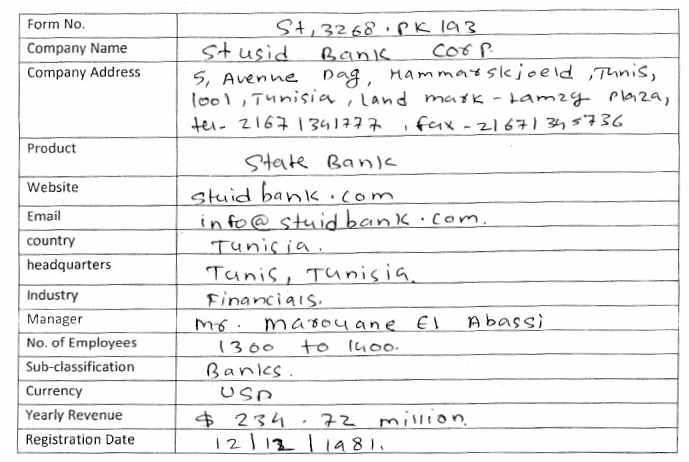 Form No. St, 3268. PK 193
Company Name Stusid Bank Corp.
Company Address 5, Avenue Dag, Hammarskjoeld, Tunis,
1001, Tunisia, Land mark - Lamzg Plaza,
tel- 21671341777, fax - 21671345736
Product State Bank
Website stuid bank.com
Email info@stuidbank.com.
country Tunisia.
headquarters Tunis, Tunisia.
Industry Financials.
Manager Mr. Marouane El Abassi
No. of Employees 1300 to 1400.
Sub-classification Banks.
Currency USD
Yearly Revenue $ 234.72 million.
Registration Date 12/12/1981.